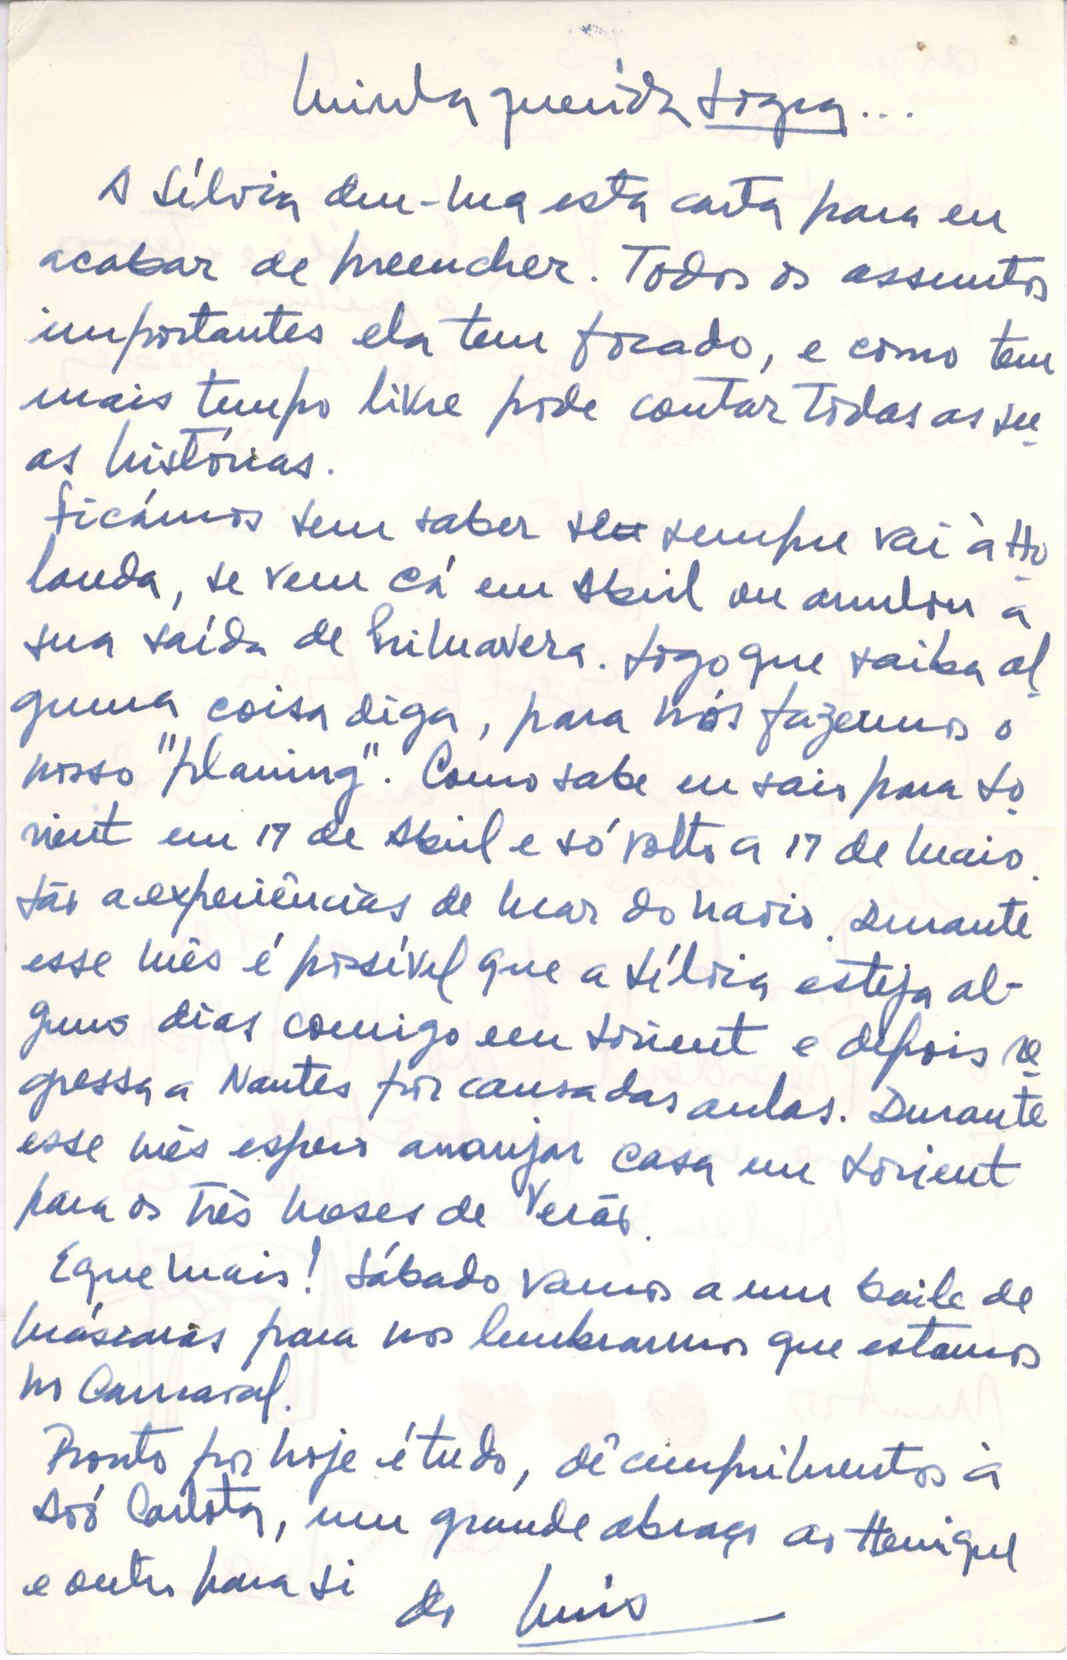 Minha querida Sogra...
A Sílvia deu-ma esta carta para eu
acabar de preencher. Todos os assuntos
importantes ela tem focado, e como tem
mais tempo livre pode contar todas as su-
as histórias.
Ficámos sem saber se sempre vai à Ho-
landa, se vem cá em Abril ou anulou a
sua saída de Primavera. Logo que saiba al-
guma coisa diga, para nós fazermos o
nosso "planing". Como sabe eu saio para Lo-
rient em 17 de Abril e só volto a 17 de Maio.
São a experiências de mar do navio. Durante
esse mês é possível que a Sílvia esteja al-
guns dias comigo em Lorient e depois re-
gressa a Nantes por causa das aulas. Durante
esse mês espero arranjar casa em Lorient
para os três meses de Verão.
E que mais! Sábado vamos a um baile de
máscaras para nos lembrarmos que estamos
no Carnaval.
Pronto por hoje é tudo, dê cumprimentos à
Avó Carlota, um grande abraço ao Henrique
e outro para si
do Luís